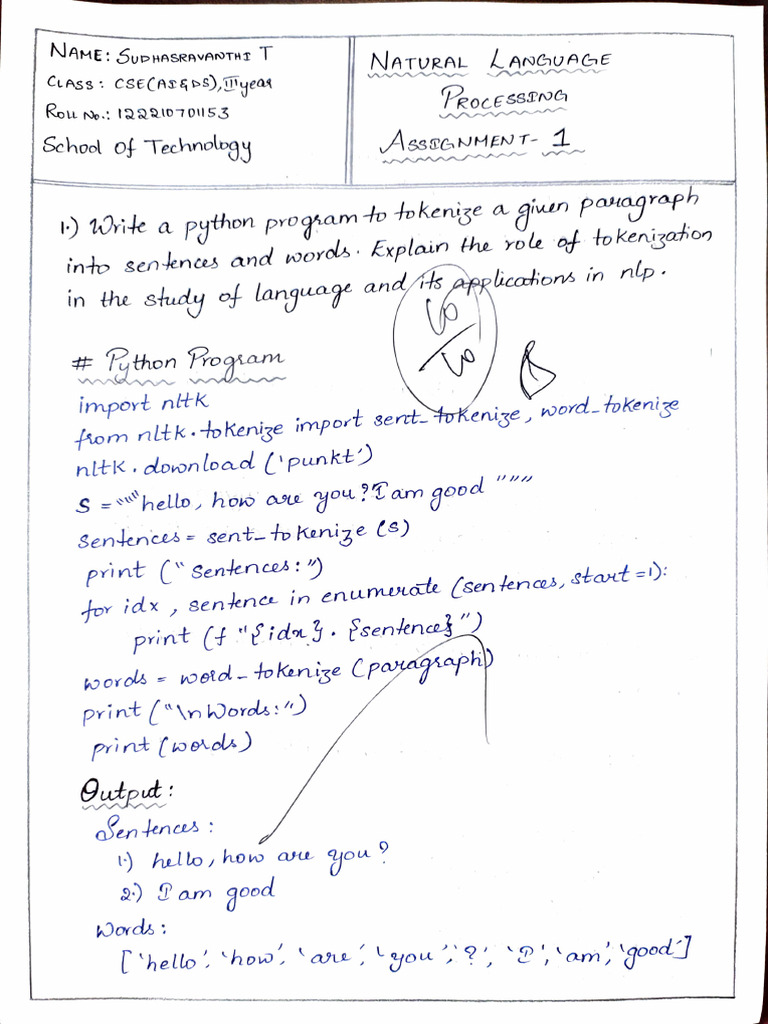 NAME: SUDHASRAVANTHI T
CLASS: CSE(AI&DS), III year
ROLL No.: 122210701153
School of Technology
NATURAL LANGUAGE
PROCESSING
ASSIGNMENT- 1
1.) Write a python program to tokenize a given paragraph
into sentences and words. Explain the role of tokenization
in the study of language and its applications in nlp.
10
10
# Python Program
import nltk
from nltk.tokenize import sent_tokenize, word_tokenize
nltk.download ('punkt')
S = """hello, how are you? I am good """
sentences = sent_tokenize (s)
print ("Sentences:")
for idx, sentence in enumerate (sentences, start=1):
print (f "{idx}. {sentence}")
words = word_tokenize (paragraph)
print ("\nWords:")
print (words)
Output:
Sentences:
1.) hello, how are you?
2.) I am good
Words:
['hello', 'how', 'are', 'you', '?', 'I', 'am', 'good']